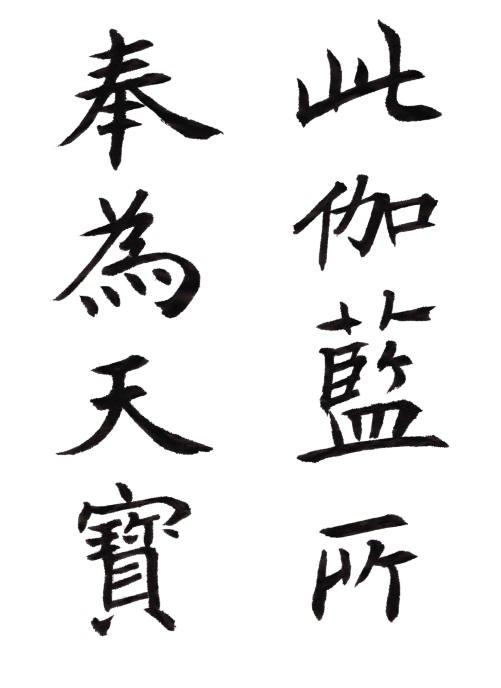 此伽藍所
奉為天寶